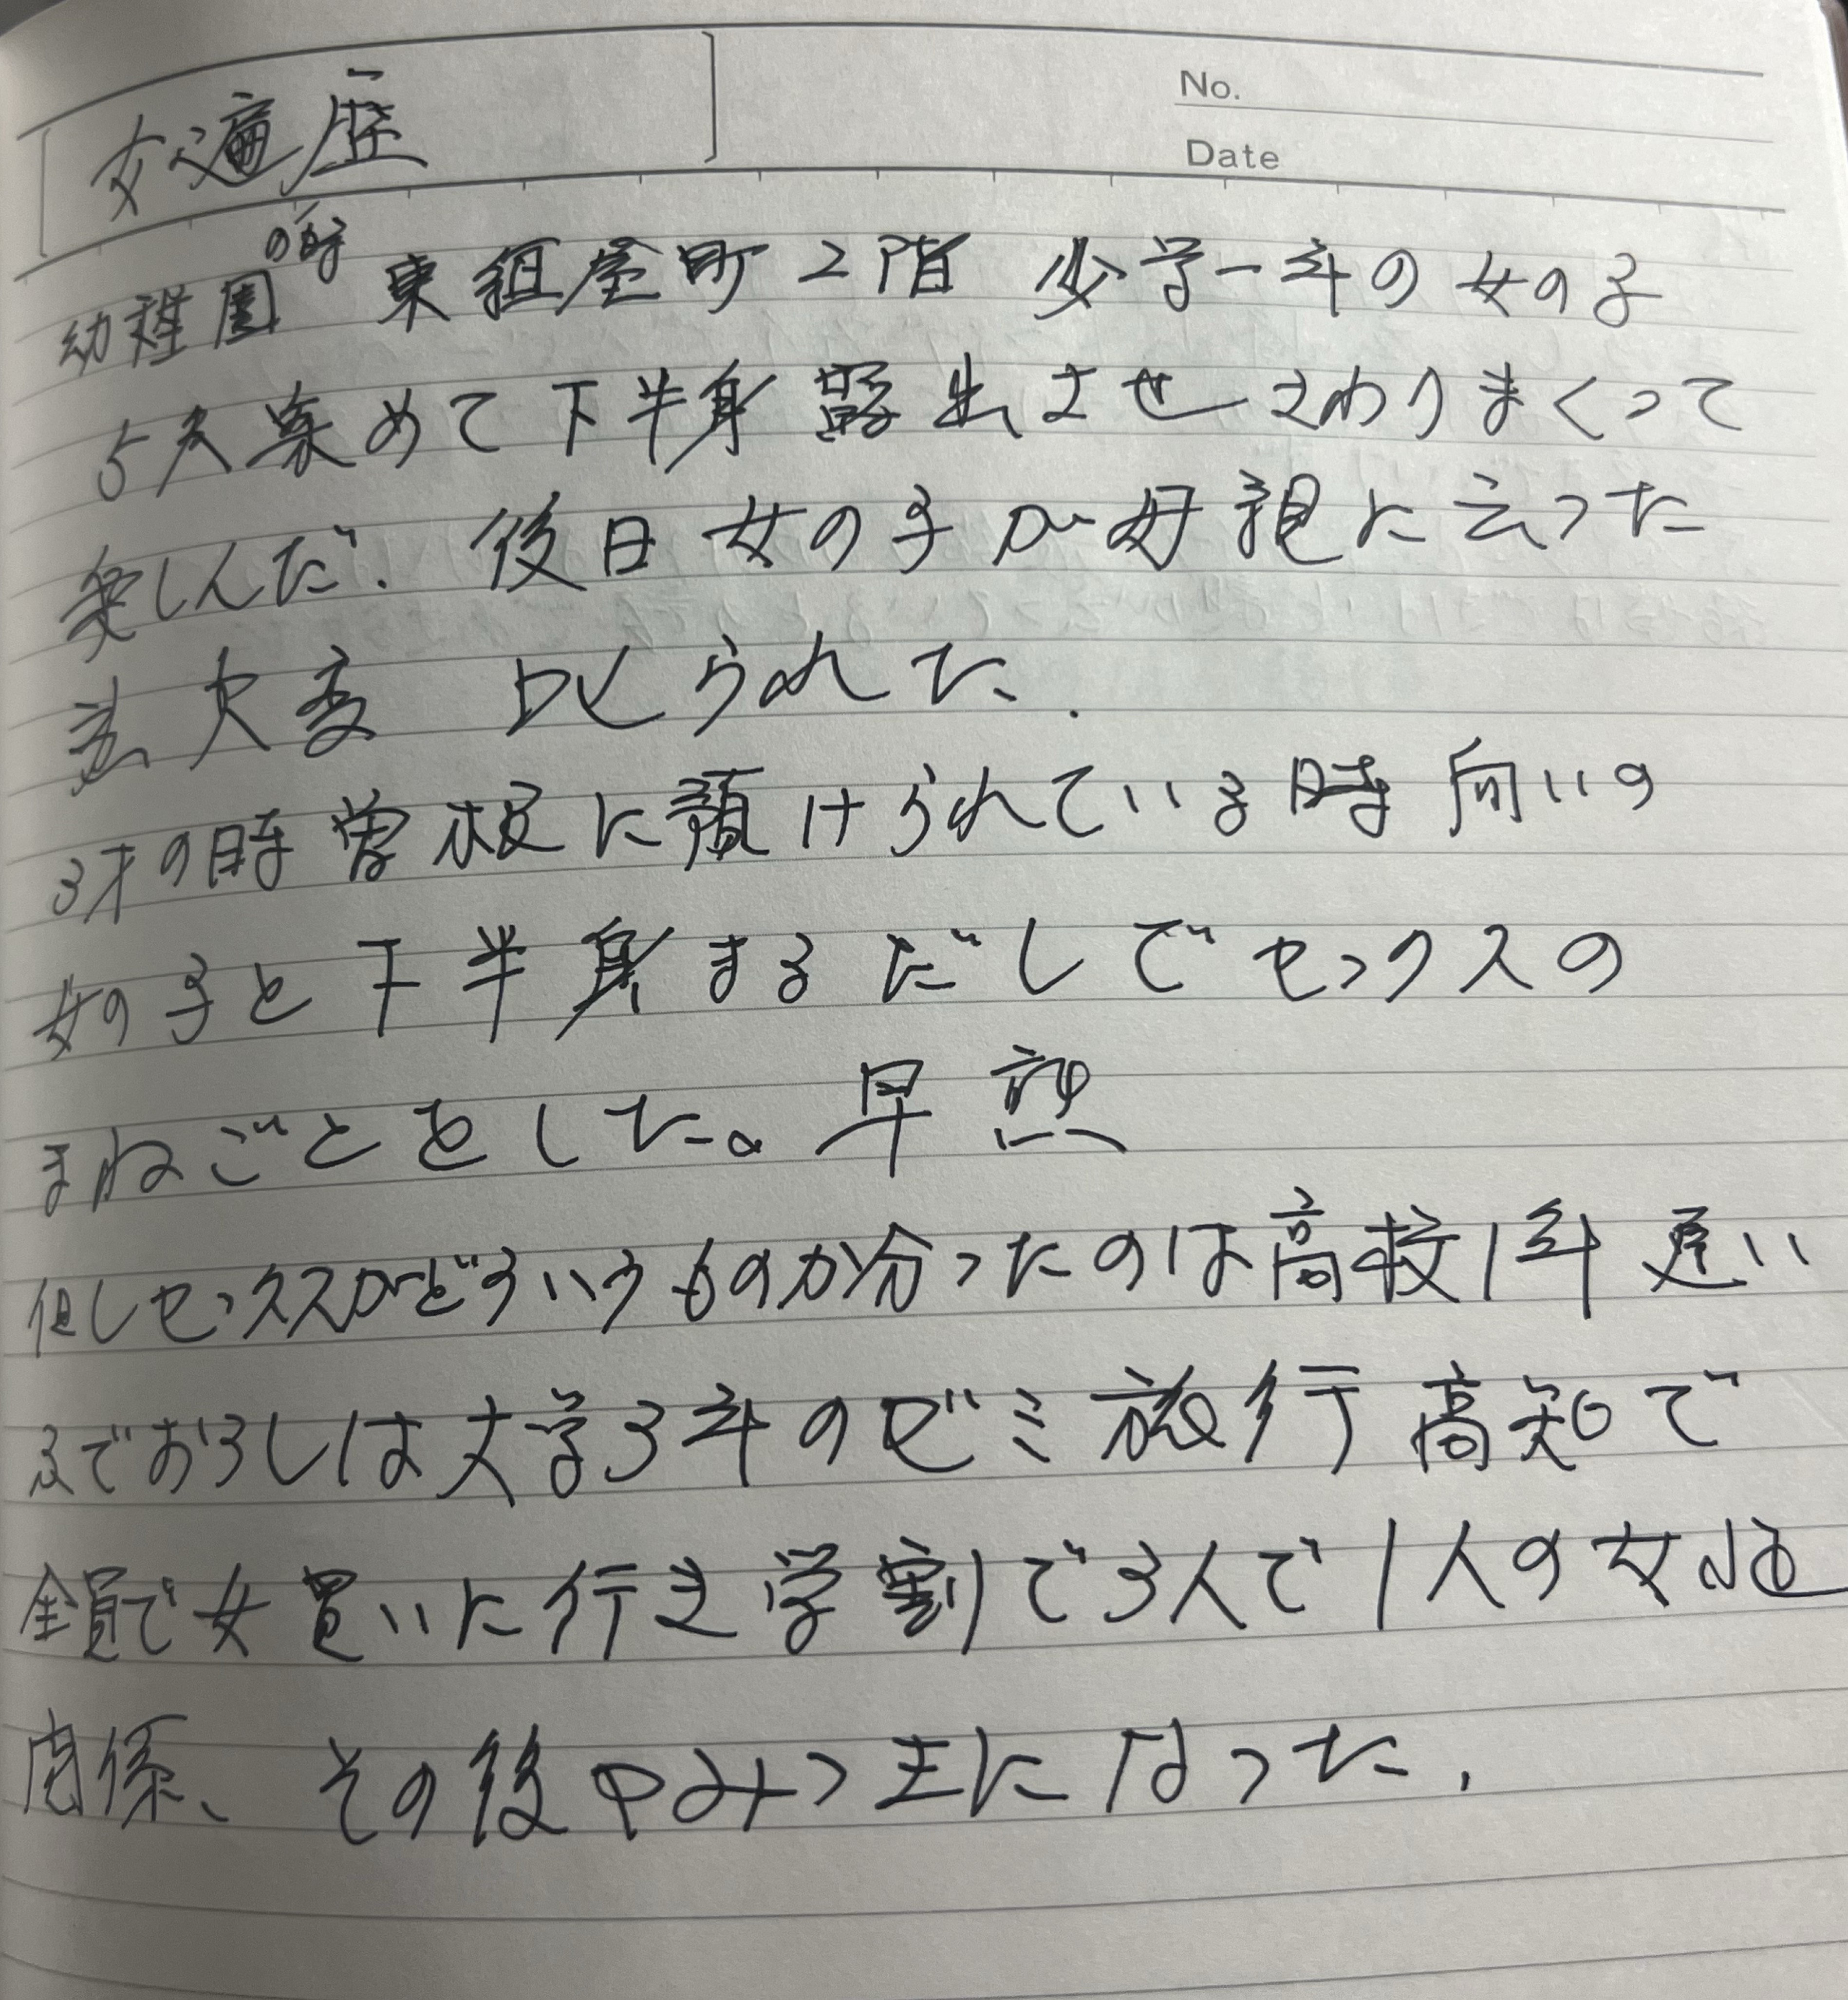 女遍歴
No.
Date
幼稚園の時 東組屋町2階 小学一年の女の子
5人集めて下半身露出させさわりまくって
楽しんだ. 後日女の子が母親に云った
為 大変 叱られた.
3才の時曽根に預けられている時向いの
女の子と下半身まるだしでセックスの
まねごとをした。早熟
但しセックスがどういうものか分ったのは高校1年 遅い
ふでおろしは大学3年のゼミ旅行高知で
全員で女買いに行き学割で3人で1人の女
関係、その後やみつきになった.